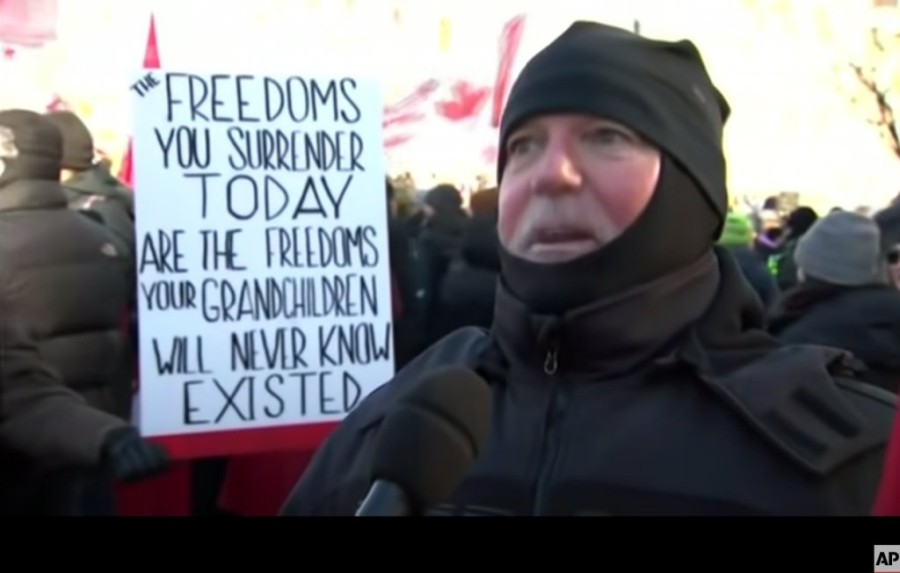 THE FREEDOMS
YOU SURRENDER
TODAY
ARE THE FREEDOMS
YOUR GRANDCHILDREN
WILL NEVER KNOW
EXISTED
AP